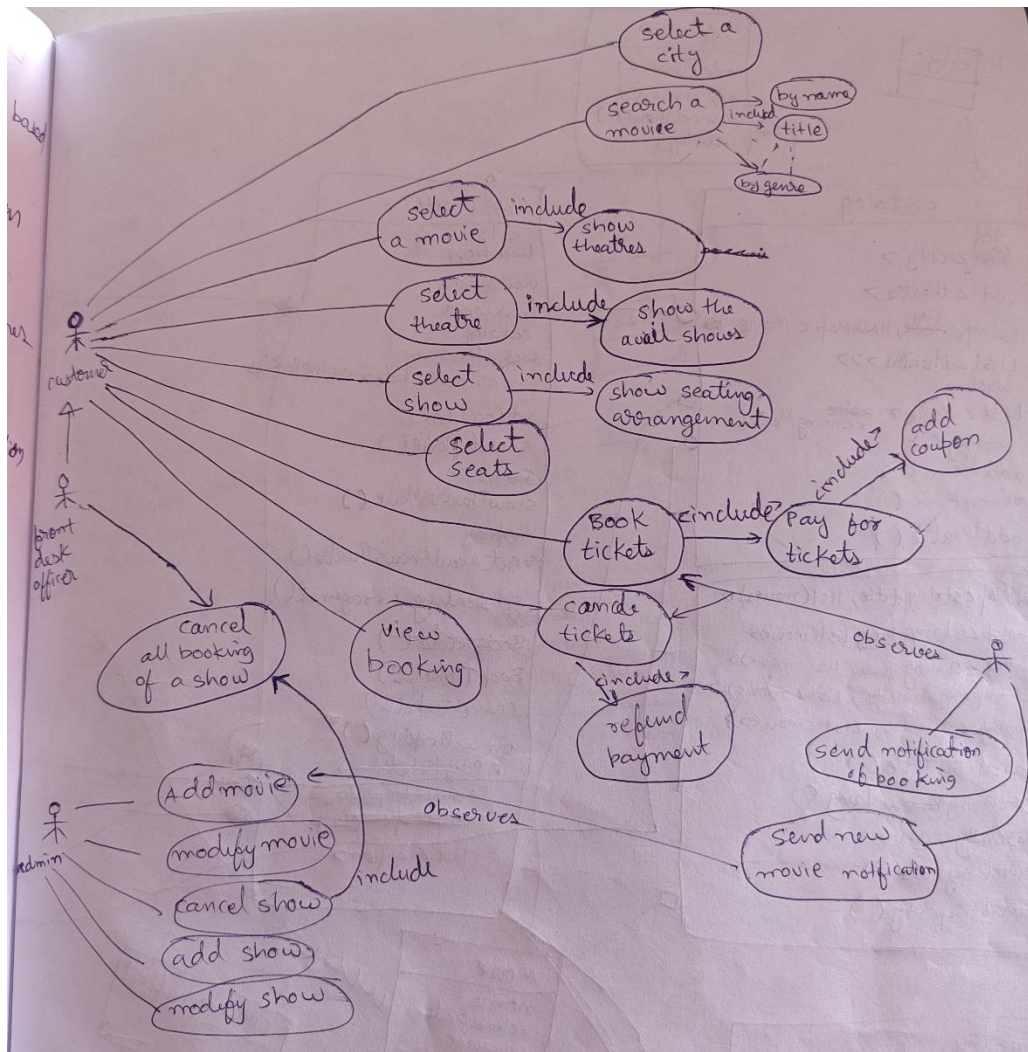 select a
city
search a
movie
includ
by name
title
by genre
select
a movie
include
show
theatres
select
theatre
include
show the
avail shows
select
show
include
show seating
arrangement
select
seats
customer
front
desk
officer
Book
tickets
<include>
Pay for
tickets
<include>
add
coupon
cancle
tickets
<include>
refund
payment
view
booking
cancel
all booking
of a show
observes
send notification
of booking
send new
movie notfication
observes
admin
Add movie
modify movie
cancel show
include
add show
modify show
catalog